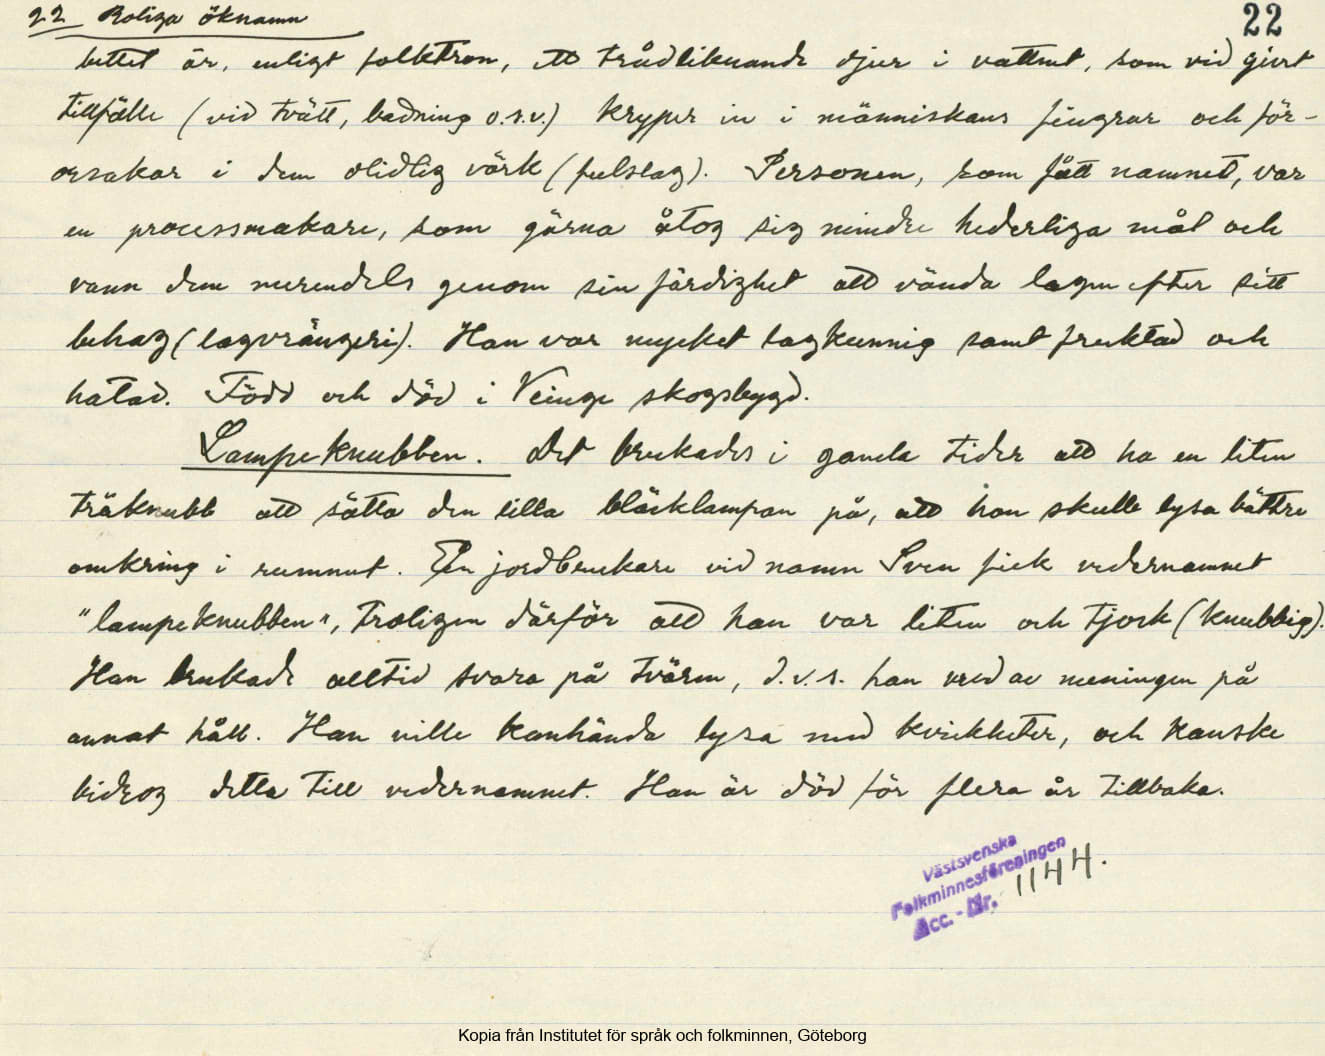 22 Roliga öknamn
22
bettet är, enligt folktron, ett trådliknande djur i vattnet, som vid givet
tillfälle (vid tvätt, badning o.s.v.) kryper in i människans fingrar och för-
orsakar i dem olidlig värk (fulslag). Personen, som fått namnet, var
en processmakare, som gärna åtog sig mindre hederliga mål och
vann dem merendels genom sin färdighet att vända lagen efter sitt
behag (lagvrängeri). Han var mycket lagkunnig samt fruktad och
hatad. Född och död i Veinge skogsbygd.
Lampeknubben. Det brukades i gamla tider att ha en liten
träknubb att sätta den lilla bläcklampan på, att hon skulle lysa bättre
omkring i rummet. En jordbrukare vid namn Sven fick vedernamnet
"lampeknubben", troligen därför att han var liten och tjock (knubbig).
Han brukade alltid svara på tvären, d.v.s. han vred av meningen på
annat håll. Han ville kanhända lysa med kvickheter, och kanske
bidrog detta till vedernamnet. Han är död för flera år tillbaka.
Västsvenska
Folkminnesföreningen
Acc. - Nr. 1144.
Kopia från Institutet för språk och folkminnen, Göteborg